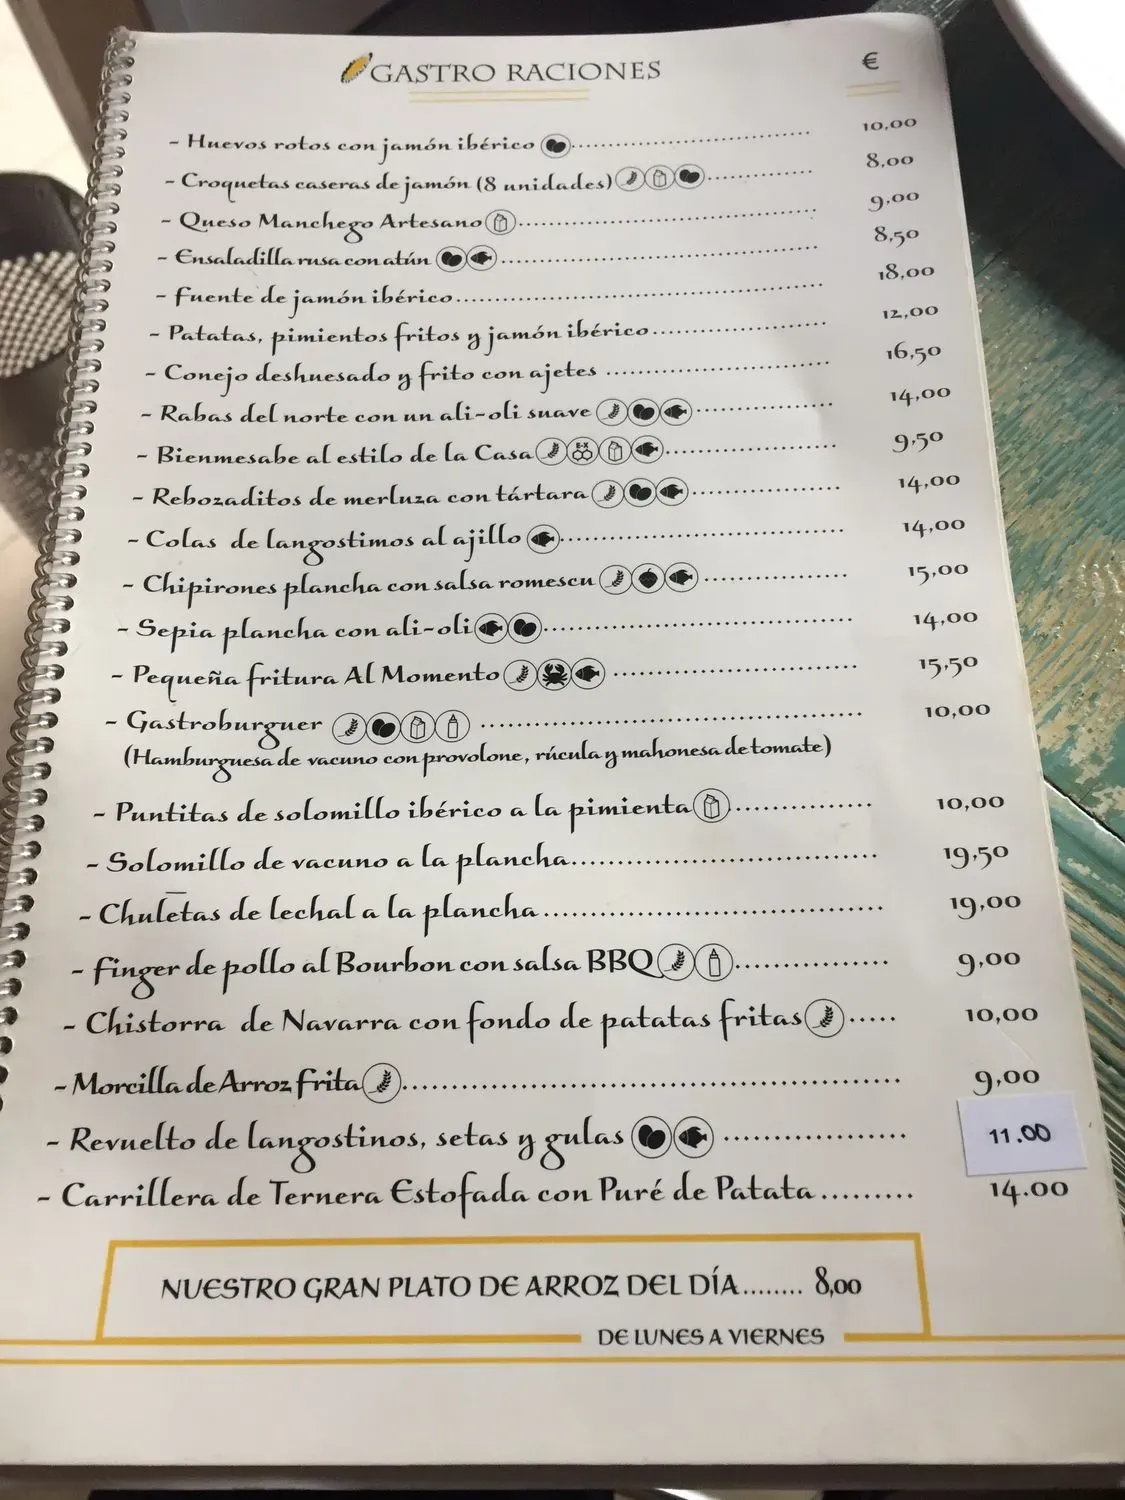 GASTRO RACIONES €
- Huevos rotos con jamón ibérico ........ 10,00
- Croquetas caseras de jamón (8 unidades) ........ 8,00
- Queso Manchego Artesano ........ 9,00
- Ensaladilla rusa con atún ........ 8,50
- Fuente de jamón ibérico ........ 18,00
- Patatas, pimientos fritos y jamón ibérico ........ 12,00
- Conejo deshuesado y frito con ajetes ........ 16,50
- Rabas del norte con un ali-oli suave ........ 14,00
- Bienmesabe al estilo de la Casa ........ 9,50
- Rebozaditos de merluza con tártara ........ 14,00
- Colas de langostimos al ajillo ........ 14,00
- Chipirones plancha con salsa romescu ........ 15,00
- Sepia plancha con ali-oli ........ 14,00
- Pequeña fritura Al Momento ........ 15,50
- Gastroburguer ........ 10,00
(Hamburguesa de vacuno con provolone, rúcula y mahonesa de tomate)
- Puntitas de solomillo ibérico a la pimienta ........ 10,00
- Solomillo de vacuno a la plancha ........ 19,50
- Chuletas de lechal a la plancha ........ 19,00
- Finger de pollo al Bourbon con salsa BBQ ........ 9,00
- Chistorra de Navarra con fondo de patatas fritas ..... 10,00
- Morcilla de Arroz Frita ........ 9,00
- Revuelto de langostinos, setas y gulas ........ 11.00
- Carrillera de Ternera Estofada con Puré de Patata ......... 14.00
NUESTRO GRAN PLATO DE ARROZ DEL DÍA........ 8,00
DE LUNES A VIERNES